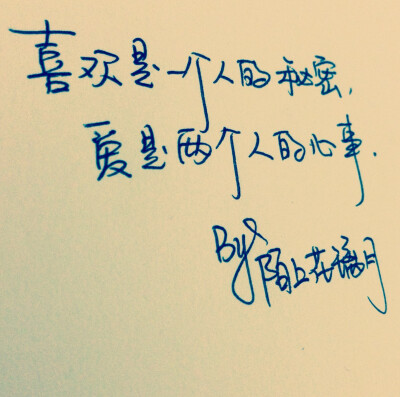 喜欢是一个人的秘密，
爱是两个人的心事.
By 陌上花漪月